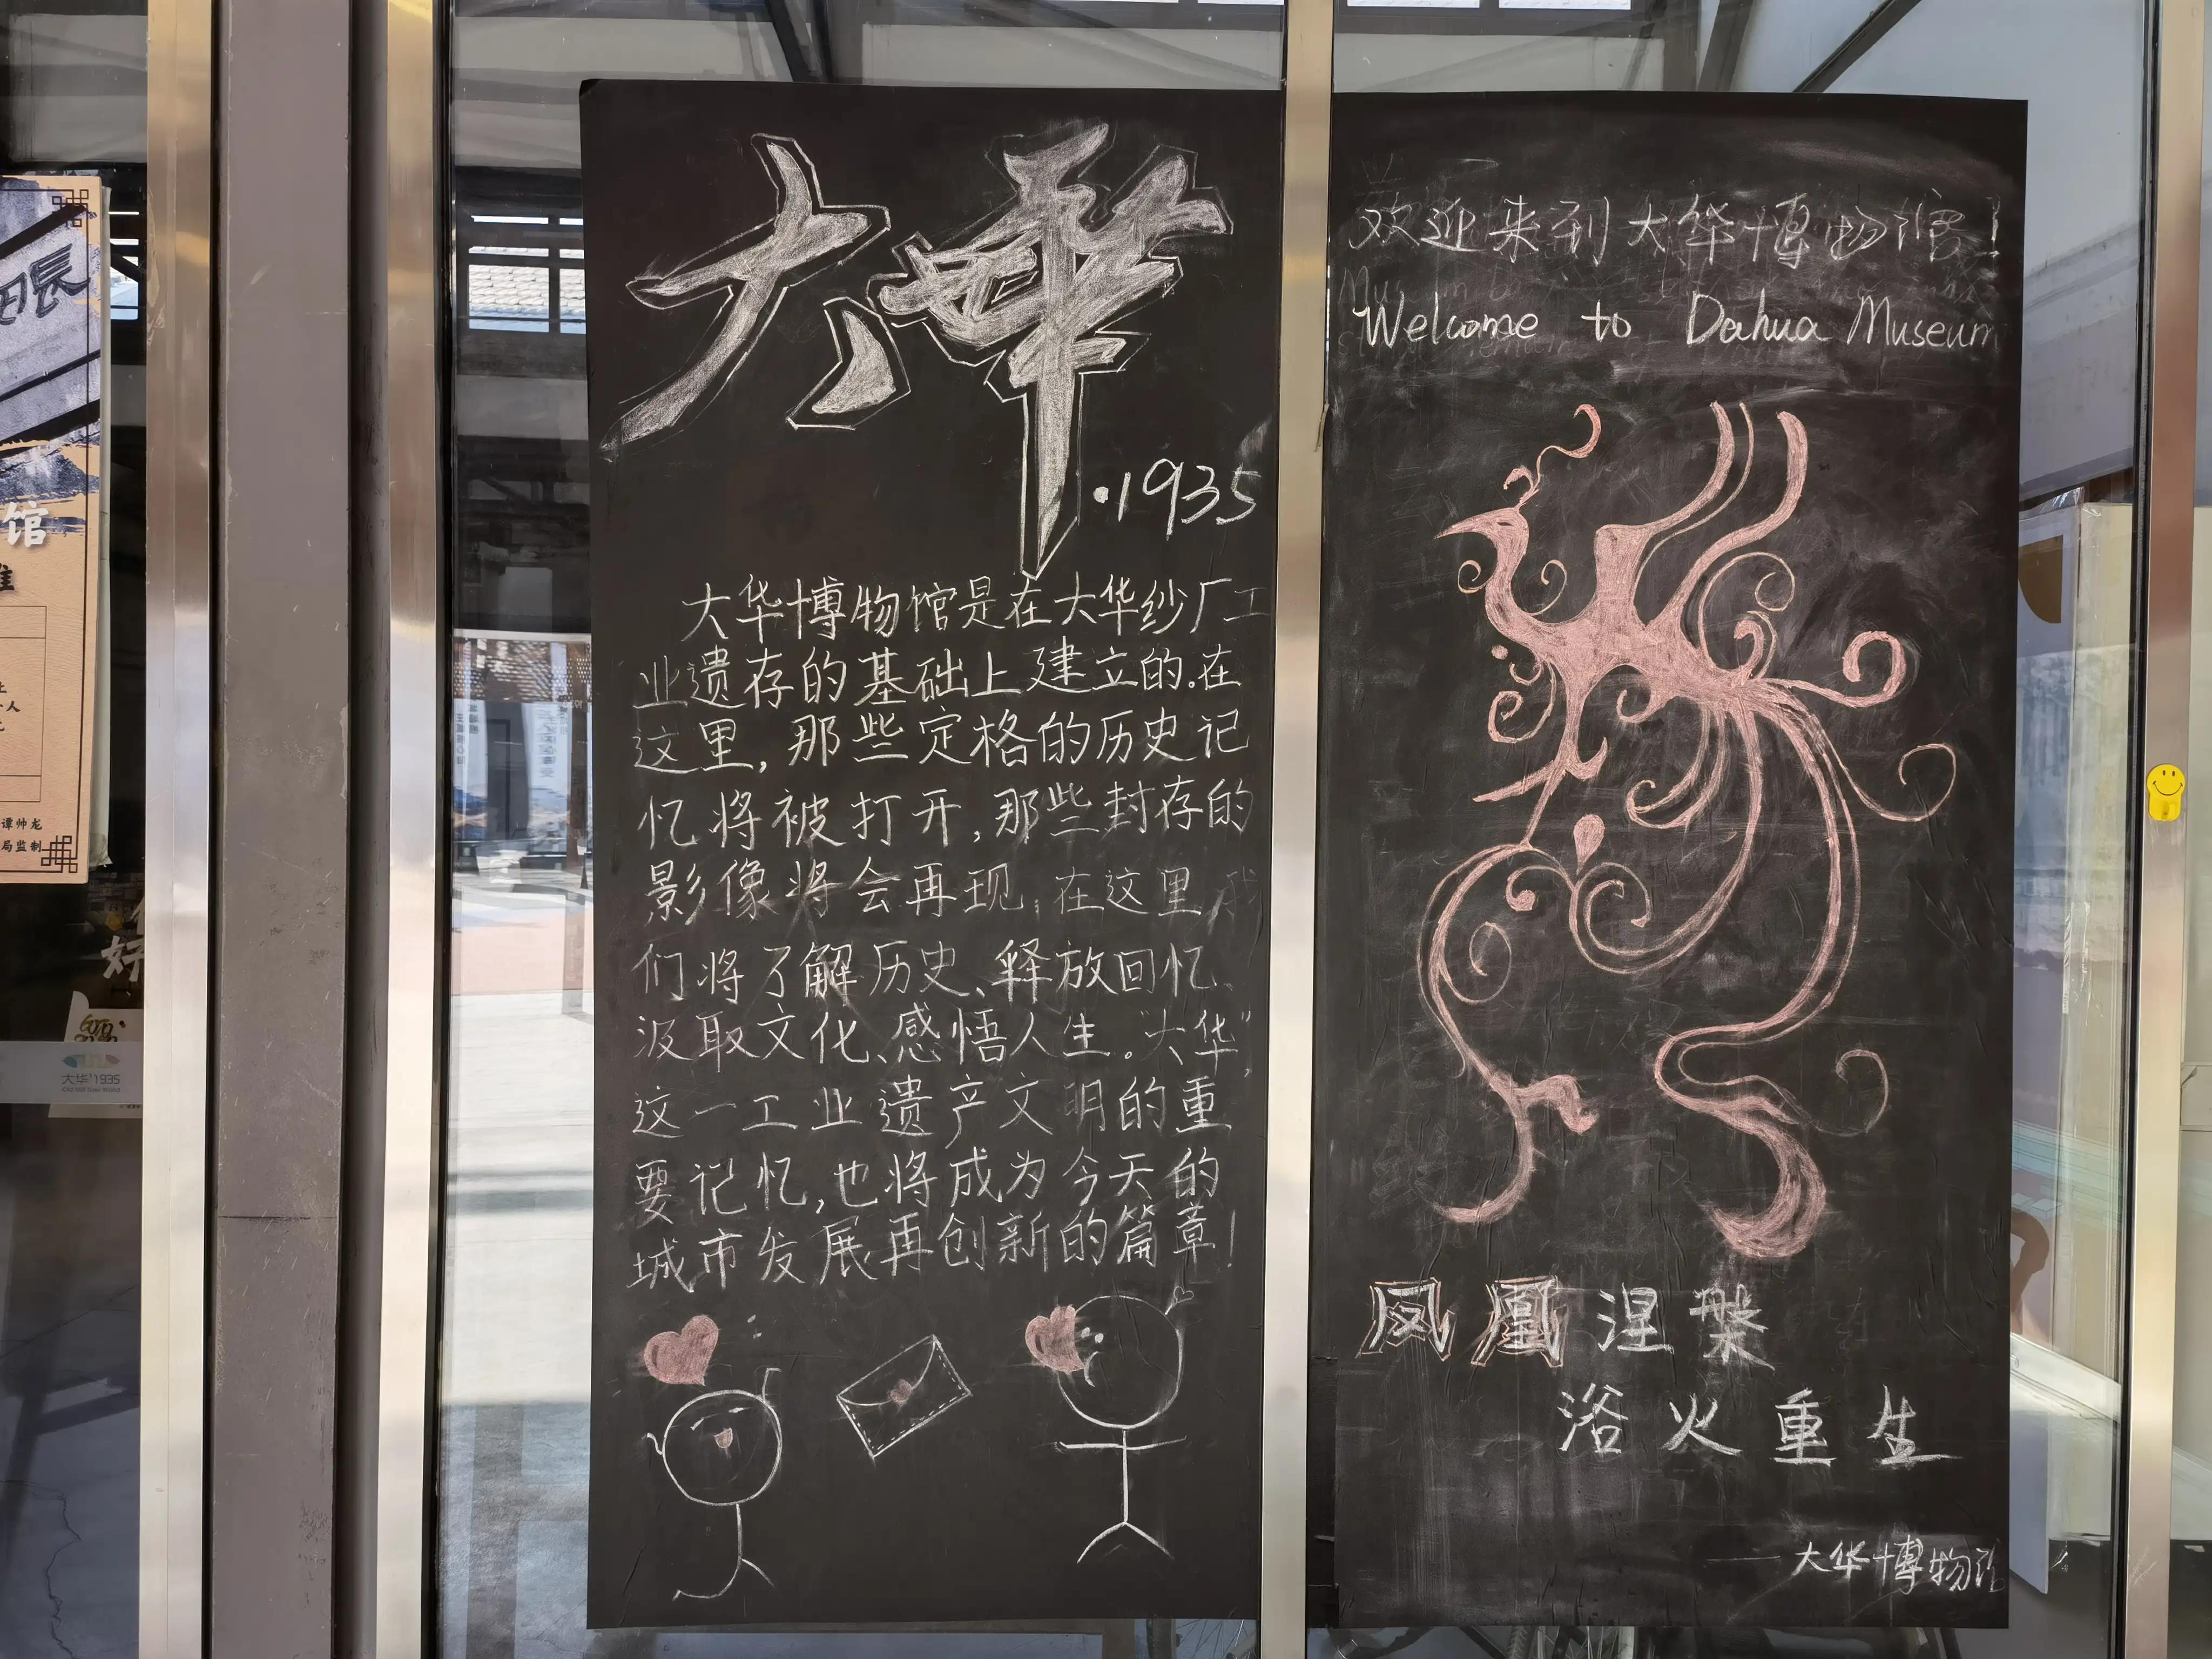 大华
·1935
大华博物馆是在大华纱厂工
业遗存的基础上建立的。在
这里,那些定格的历史记
忆将被打开,那些封存的
影像将会再现,在这里我
们将了解历史、释放回忆、
汲取文化、感悟人生。"大华",
这一工业遗产文明的重
要记忆,也将成为今天的
城市发展再创新的篇章!
欢迎来到大华博物馆!
Welcome to Dahua Museum
凤凰涅槃
浴火重生
——大华博物馆
馆
谭帅龙
局监制
好
大华·1935